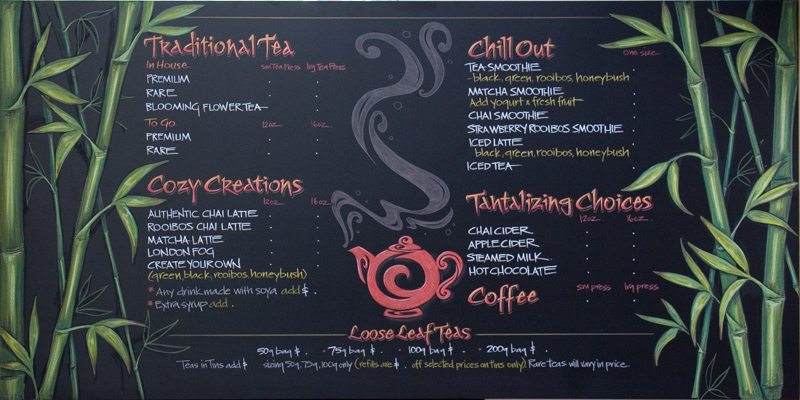 Traditional Tea
In House sm Tea Press lrg Tea Press
PREMIUM
RARE
BLOOMING FLOWER TEA
To Go 12oz. 16oz.
PREMIUM
RARE
Cozy Creations
12oz. 16oz.
AUTHENTIC CHAI LATTE
ROOIBOS CHAI LATTE
MATCHA LATTE
LONDON FOG
CREATE YOUR OWN
(green, black, rooibos, honeybush)
* Any drink made with soya add $
* Extra syrup add .
Chill Out one size
TEA SMOOTHIE
- black, green, rooibos, honeybush
MATCHA SMOOTHIE
Add yogurt & fresh fruit
CHAI SMOOTHIE
STRAWBERRY ROOIBOS SMOOTHIE
ICED LATTE
black, green, rooibos, honeybush
ICED TEA
Tantalizing Choices
12oz. 16oz.
CHAI CIDER
APPLE CIDER
STEAMED MILK
HOT CHOCOLATE
Coffee sm press lrg press
Loose Leaf Teas
50g bag $ . • 75g bag $ . • 100g bag $ . • 200g bag $ .
Teas in Tins add $ sizing 50g, 75g, 100g only (refills are $ . off selected prices on tins only) Rare teas will vary in price.